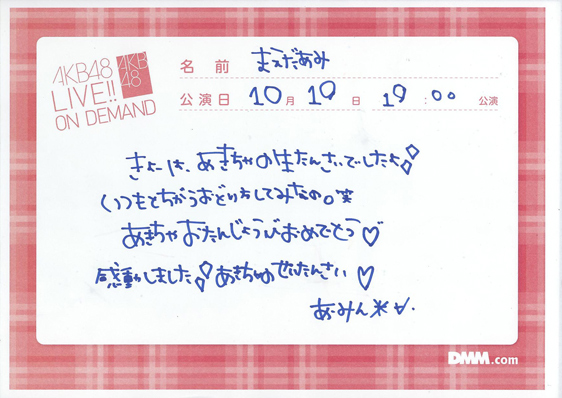 AKB48
LIVE!!
ON DEMAND
AKB
48
名前 まえだあみ
公演日 10月19日 19:00 公演
きょーは、あきちゃの生たんさいでしたよ
いつもとちがうおどりもしてみたの。笑
あきちゃおたんじょうびおめでとう♡
感動しました あきちゃのせいたんさい♡
あーみん
DMM.com